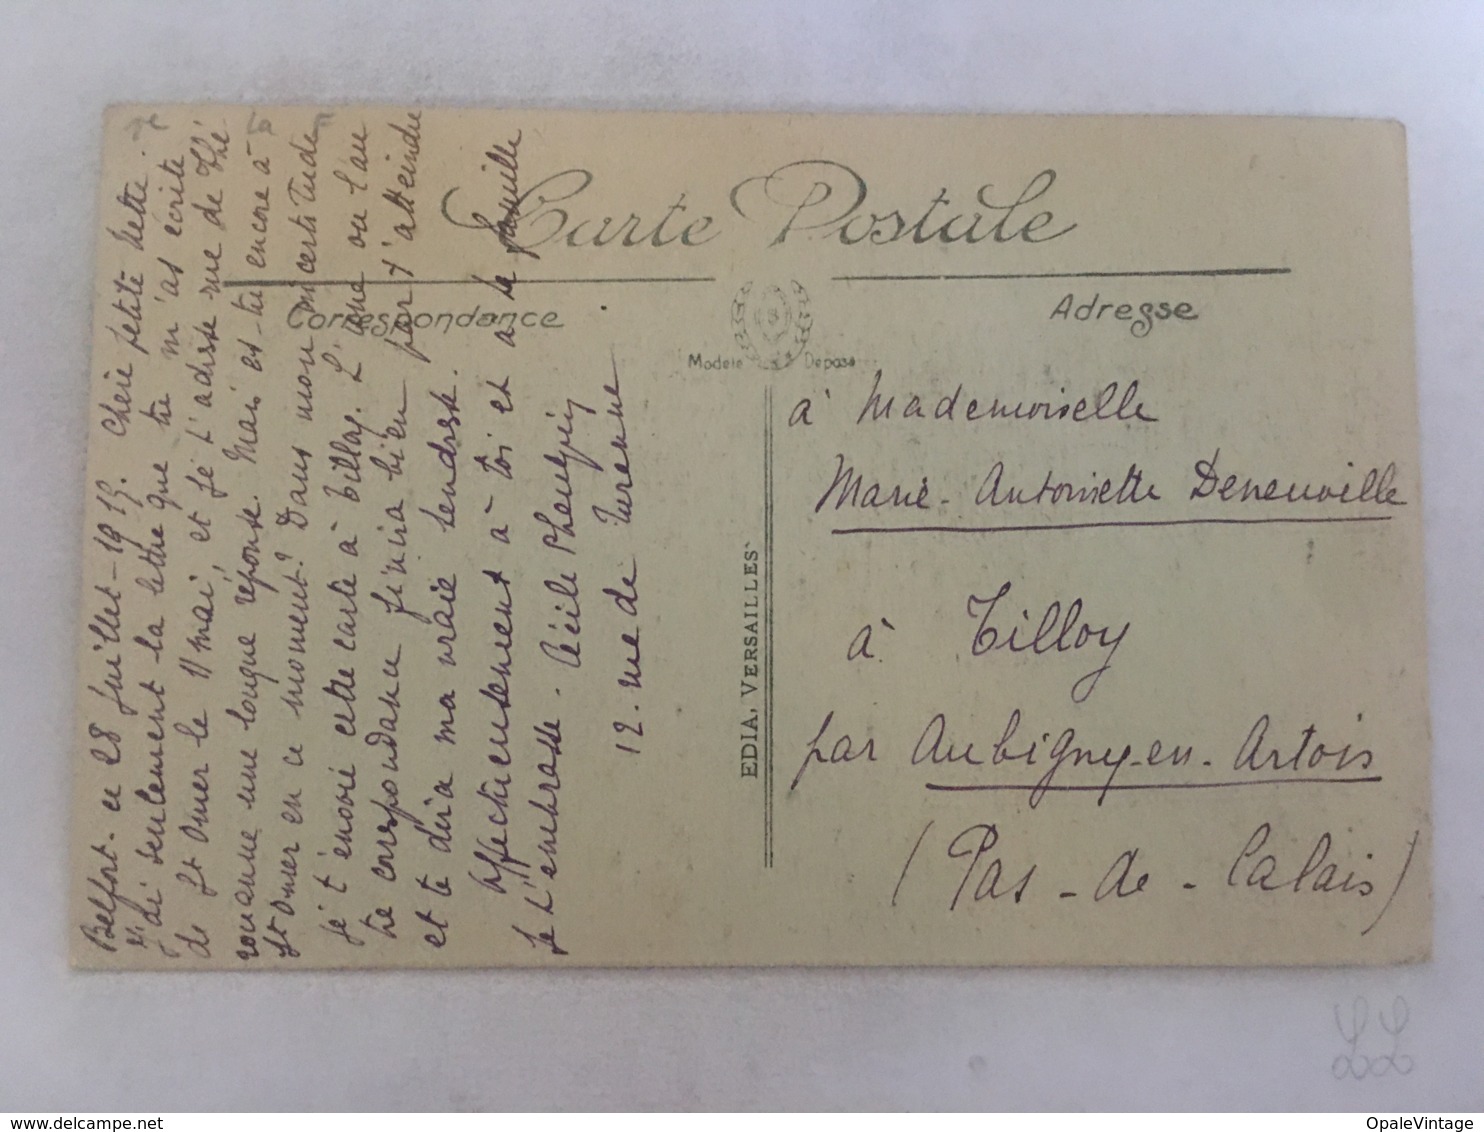 Carte Postale
Correspondance
Adresse
Modèle Déposé
EDIA, VERSAILLES
Belfort. ce 28 Juillet-1919. Chère petite Nette.
J'ai seulement la lettre que tu m'as écrite
de St Omer le 11 mai, et je t'adresse rue de Thé
rouanne une longue réponse. Mais es-tu encore à
St Omer en ce moment? Dans mon incertitude
je t'envoie cette carte à Tilloy. L'une ou l'au
tre correspondance finira bien par t'atteindre
et te dira ma vraie tendresse.
Affectueusement à toi et à ta famille
Je t'embrasse. Cécile
12. rue de Turenne
à Mademoiselle
Marie-Antoinette Deneuville
à Tilloy
par Aubigny-en-Artois
(Pas-de-Calais)
delcampe.net
OpaleVintage